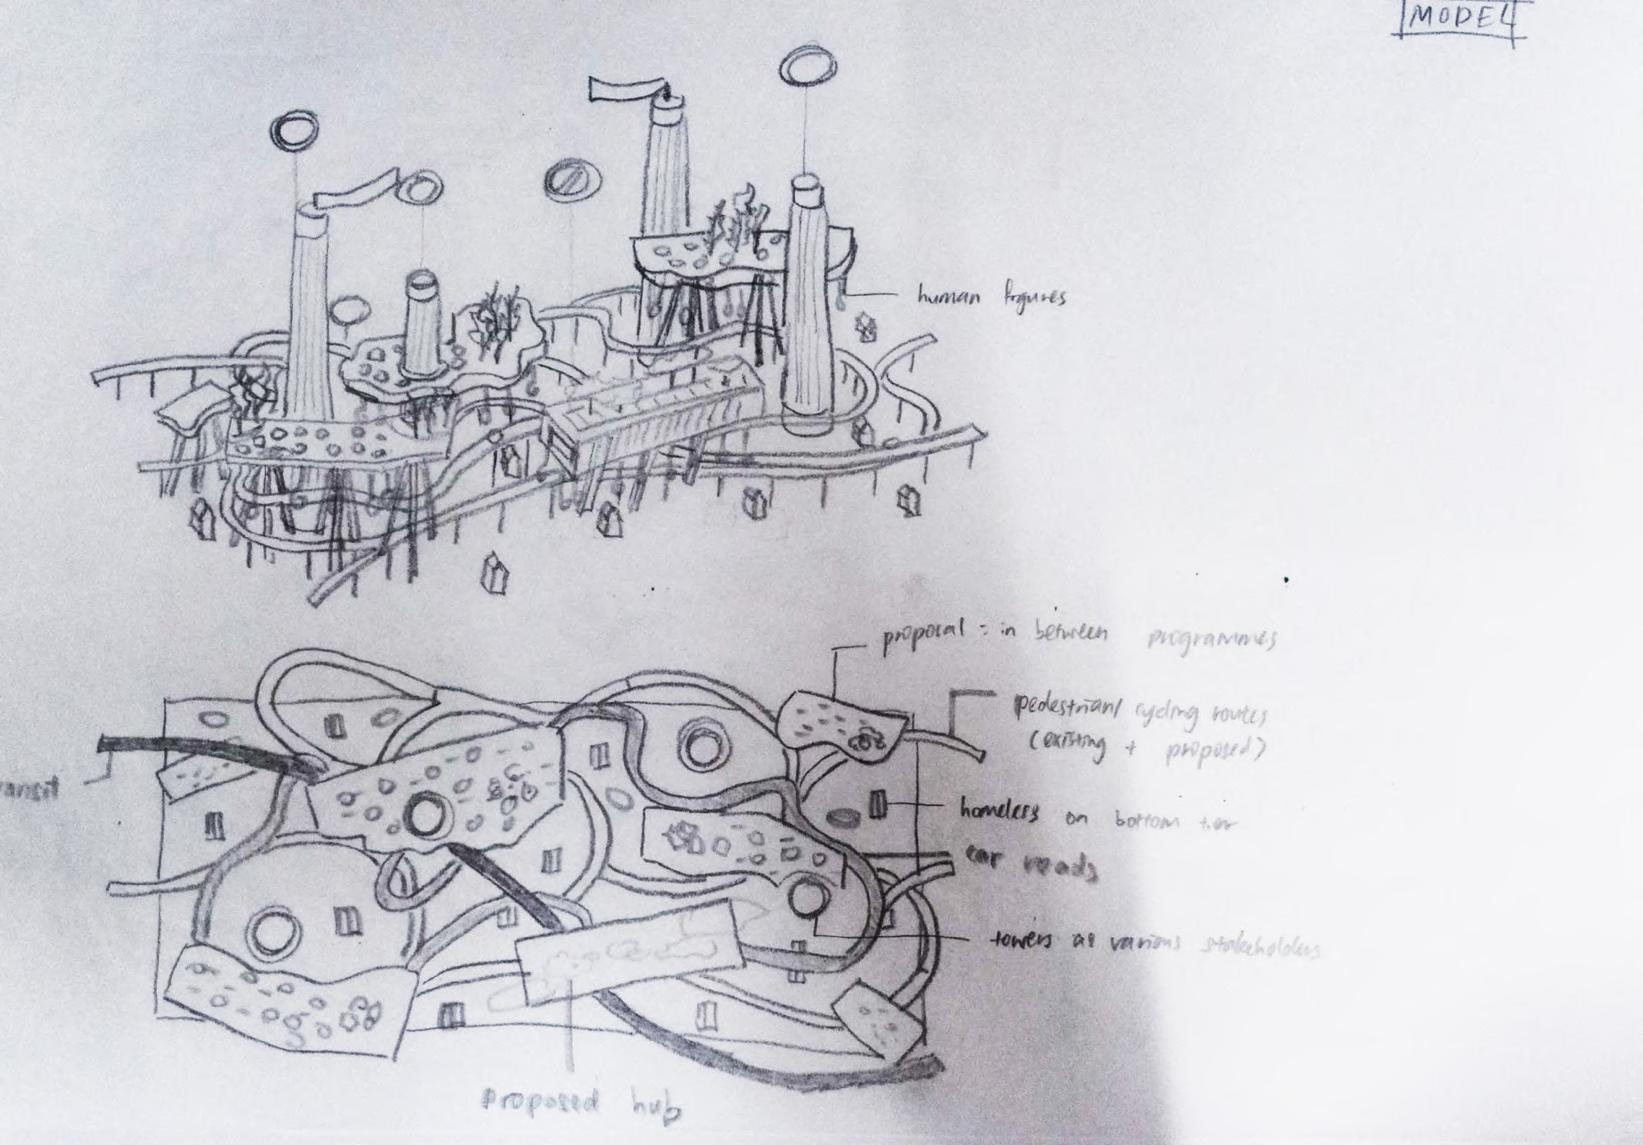 MODEL
human figures
proposal : in between programmes
pedestrian/ cycling routes
(existing + proposed)
ransit
homeless on bottom tier
car roads
towers as various stakeholders
proposed hub